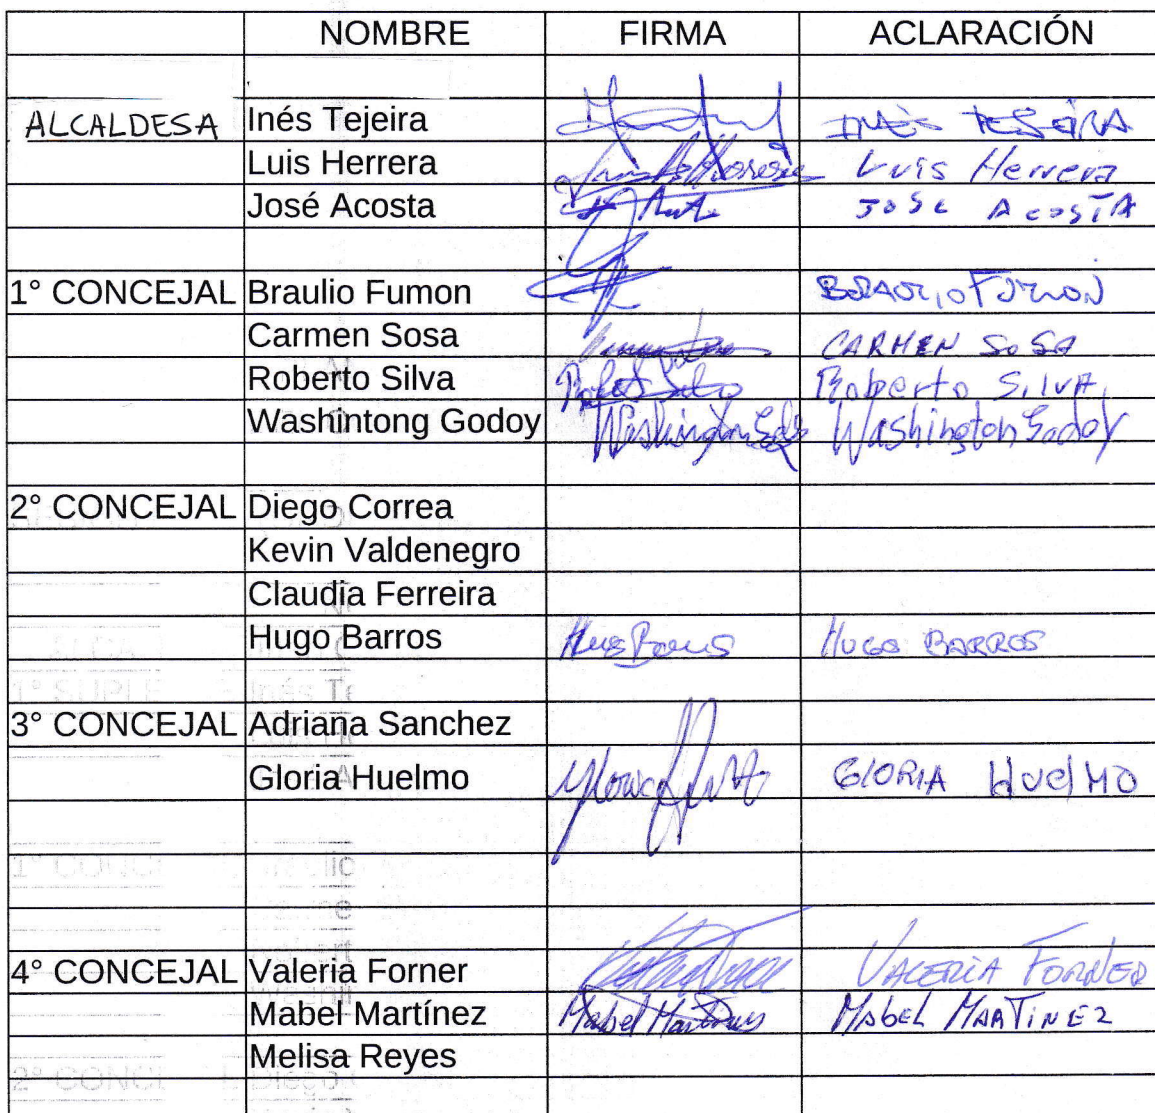 NOMBRE FIRMA ACLARACIÓN
ALCALDESA Inés Tejeira INES TEJEIRA
Luis Herrera Luis Herrera
José Acosta JOSE ACOSTA
1° CONCEJAL Braulio Fumon BRAULIO FUMON
Carmen Sosa CARMEN SOSA
Roberto Silva Roberto Silva Roberto SilVA
Washintong Godoy Washington Godoy Washington Godoy
2° CONCEJAL Diego Correa
Kevin Valdenegro
Claudia Ferreira
Hugo Barros HUGO BARROS
3° CONCEJAL Adriana Sanchez
Gloria Huelmo GlORIA HUelMO
4° CONCEJAL Valeria Forner VALERIA FORNER
Mabel Martínez Mabel Martinez MAbEL MARTiNEZ
Melisa Reyes